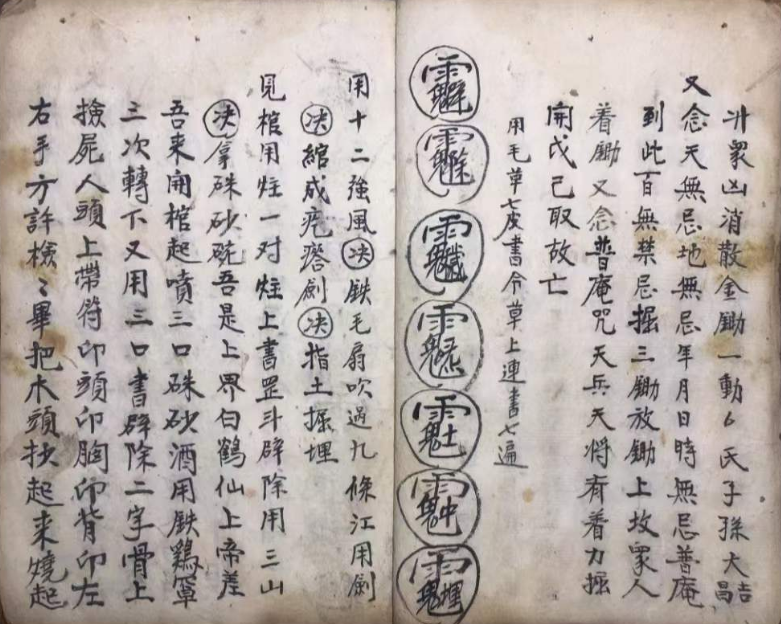 汁眾凶消散金鋤一動厶氏子孫大吉昌
又念天無忌地無忌年月日時無忌普庵
到此百無禁忌掘三鋤放鋤上坟眾人
着鋤又念普庵咒天兵天將有着力掘
開戊己取故亡
用毛草七皮書令草上連書七遍
用十二強風决鉄毛扇吹過九條江用劍
决綰成疤瘩劍决指土掘埋
見棺用炷一对炷上書罡斗辟除用三山
决拿硃砂碗吾是上界白鶴仙上帝差
吾來開棺起噴三口硃砂酒用鉄鷄罩
三次轉下又用三口書辟除二字骨上
撿屍人頭上帶符印頭印胸印背印左
右手方許檢〻畢把木頭抉起来燒起